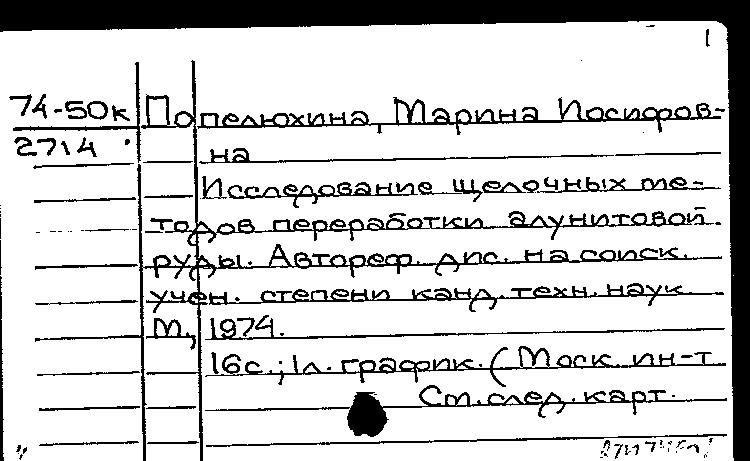 1
74-50к Попелюхина, Марина Иосифов-
2714 на
Исследование щелочных ме-
тодов переработки алунитовой
руды. Автореф. дис. на соиск.
учен. степени канд. техн. наук
М., 1974.
16с.; 1л. график. (Моск. ин-т
См. след. карт.